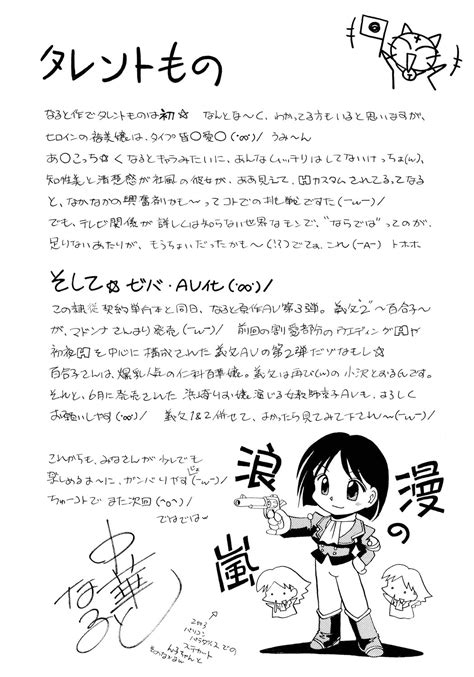 タレントもの
なると作でタレントものは初☆ なんとな〜く、わかってる方もいると思いますが、
ヒロインの裕美嬢は、タイプ皆○愛○(・∞・)/ うみ〜ん
あ○こっち☆く なるとキャラみたいに、あんなムッチリはしてないけっちょ(w)、
知性美と清楚感が社風の彼女が、ああ見えて、Hカスタムされてる、てなる
と、なかなかの興奮剤かも〜ってコトでの挑戦です(ーωー)/
でも、テレビ関係が詳しくは知らない世界なモンで、"ならでは"ってのが、
足りないあたりが、もうちょいだったかも〜(!?)でてぁ、これ(ーAー) トホホ
そして☆ゼバ・AV化(・∞・)/
この隷従契約単行本と同日、なると原作AV第3弾。義父"2"〜百合子〜
が、マドンナさんより発売(ーωー)/ 前回の割愛箇所のウエディングHや
初夜Hを中心に構成された義父AVの第2弾だゾなもし☆
百合子さんは、爆乳人志の仁科百華嬢。義父は再び(w)の小沢とおるんです。
それと、6月に発売された 浜崎りお嬢演じる女教師京子AVも、よろしく
お願いしやす(・∞・)/ 義父1&2併せて、よかったら見てみて下され〜(ーωー)/
これからも、みなさんが少しでも
楽しめるよ〜に、ガンバりやす(ーωー)/
ちゅーコトで また次回(^o^)/
ではではw
浪漫の嵐
中華なると